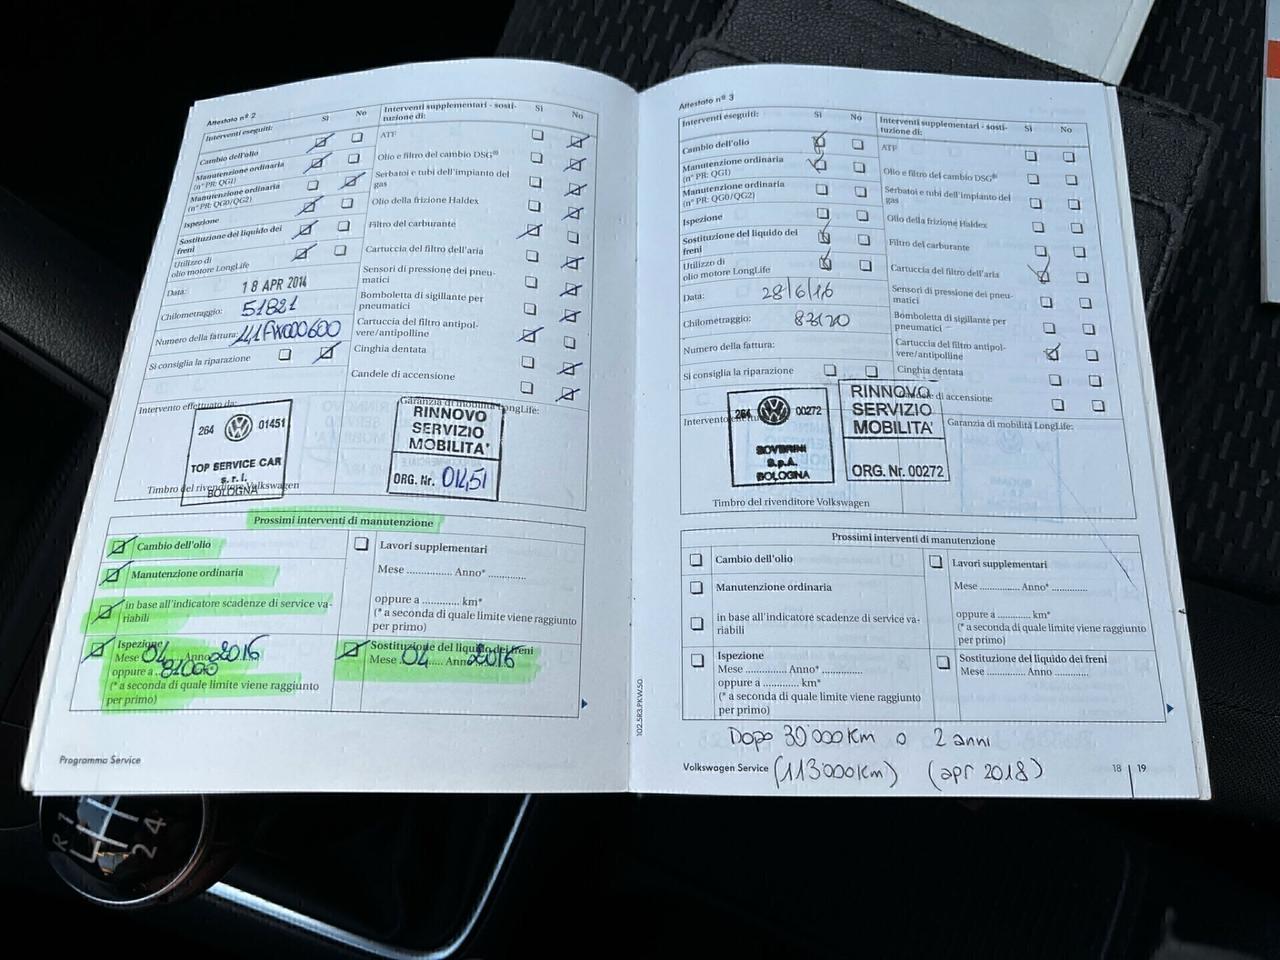 Attestato nº 2
Interventi eseguiti: Sì No
Cambio dell'olio
Manutenzione ordinaria
(nº PR: QG1)
Manutenzione ordinaria
(nº PR: QG0/QG2)
Ispezione
Sostituzione del liquido dei
freni
Utilizzo di
olio motore LongLife
Data: 18 APR 2014
Chilometraggio: 51821
Numero della fattura:
Si consiglia la riparazione
Interventi supplementari - sosti-
tuzione di: Sì No
ATF
Olio e filtro del cambio DSG®
Serbatoi e tubi dell'impianto del
gas
Olio della frizione Haldex
Filtro del carburante
Cartuccia del filtro dell'aria
Sensori di pressione dei pneu-
matici
Bomboletta di sigillante per
pneumatici
Cartuccia del filtro antipol-
vere/antipolline
Cinghia dentata
Candele di accensione
Intervento effettuato da:
264 01451
TOP SERVICE CAR
s.r.l.
BOLOGNA
Timbro del rivenditore Volkswagen
Garanzia di mobilità LongLife:
RINNOVO
SERVIZIO
MOBILITA'
ORG. Nr. 01451
Prossimi interventi di manutenzione
Cambio dell'olio
Manutenzione ordinaria
in base all'indicatore scadenze di service va-
riabili
Ispezione
Mese 04 Anno 2016
oppure a 81000
(* a seconda di quale limite viene raggiunto
per primo)
Lavori supplementari
Mese ............... Anno* .............
oppure a ............. km*
(* a seconda di quale limite viene raggiunto
per primo)
Sostituzione del liquido dei freni
Mese 04 Anno 2016
Programma Service
102.5R3.PKW.50
Attestato nº 3
Interventi eseguiti: Sì No
Cambio dell'olio
Manutenzione ordinaria
(nº PR: QG1)
Manutenzione ordinaria
(nº PR: QG0/QG2)
Ispezione
Sostituzione del liquido dei
freni
Utilizzo di
olio motore LongLife
Data: 28/6/16
Chilometraggio:
Numero della fattura:
Si consiglia la riparazione
Interventi supplementari - sosti-
tuzione di: Sì No
ATF
Olio e filtro del cambio DSG®
Serbatoi e tubi dell'impianto del
gas
Olio della frizione Haldex
Filtro del carburante
Cartuccia del filtro dell'aria
Sensori di pressione dei pneu-
matici
Bomboletta di sigillante per
pneumatici
Cartuccia del filtro antipol-
vere/antipolline
Cinghia dentata
Candele di accensione
264 00272
S.p.A.
BOLOGNA
Timbro del rivenditore Volkswagen
RINNOVO
SERVIZIO
MOBILITA'
ORG. Nr. 00272
Garanzia di mobilità LongLife:
Prossimi interventi di manutenzione
Cambio dell'olio
Manutenzione ordinaria
in base all'indicatore scadenze di service va-
riabili
Ispezione
Mese ............... Anno* ...............
oppure a ............... km*
(* a seconda di quale limite viene raggiunto
per primo)
Lavori supplementari
Mese ............... Anno* ...............
oppure a ............. km*
(* a seconda di quale limite viene raggiunto
per primo)
Sostituzione del liquido dei freni
Mese ............... Anno ...............
Dopo 30'000 Km o 2 anni
(113'000 km) (apr 2018)
Volkswagen Service 18 | 19
R 1 2 4